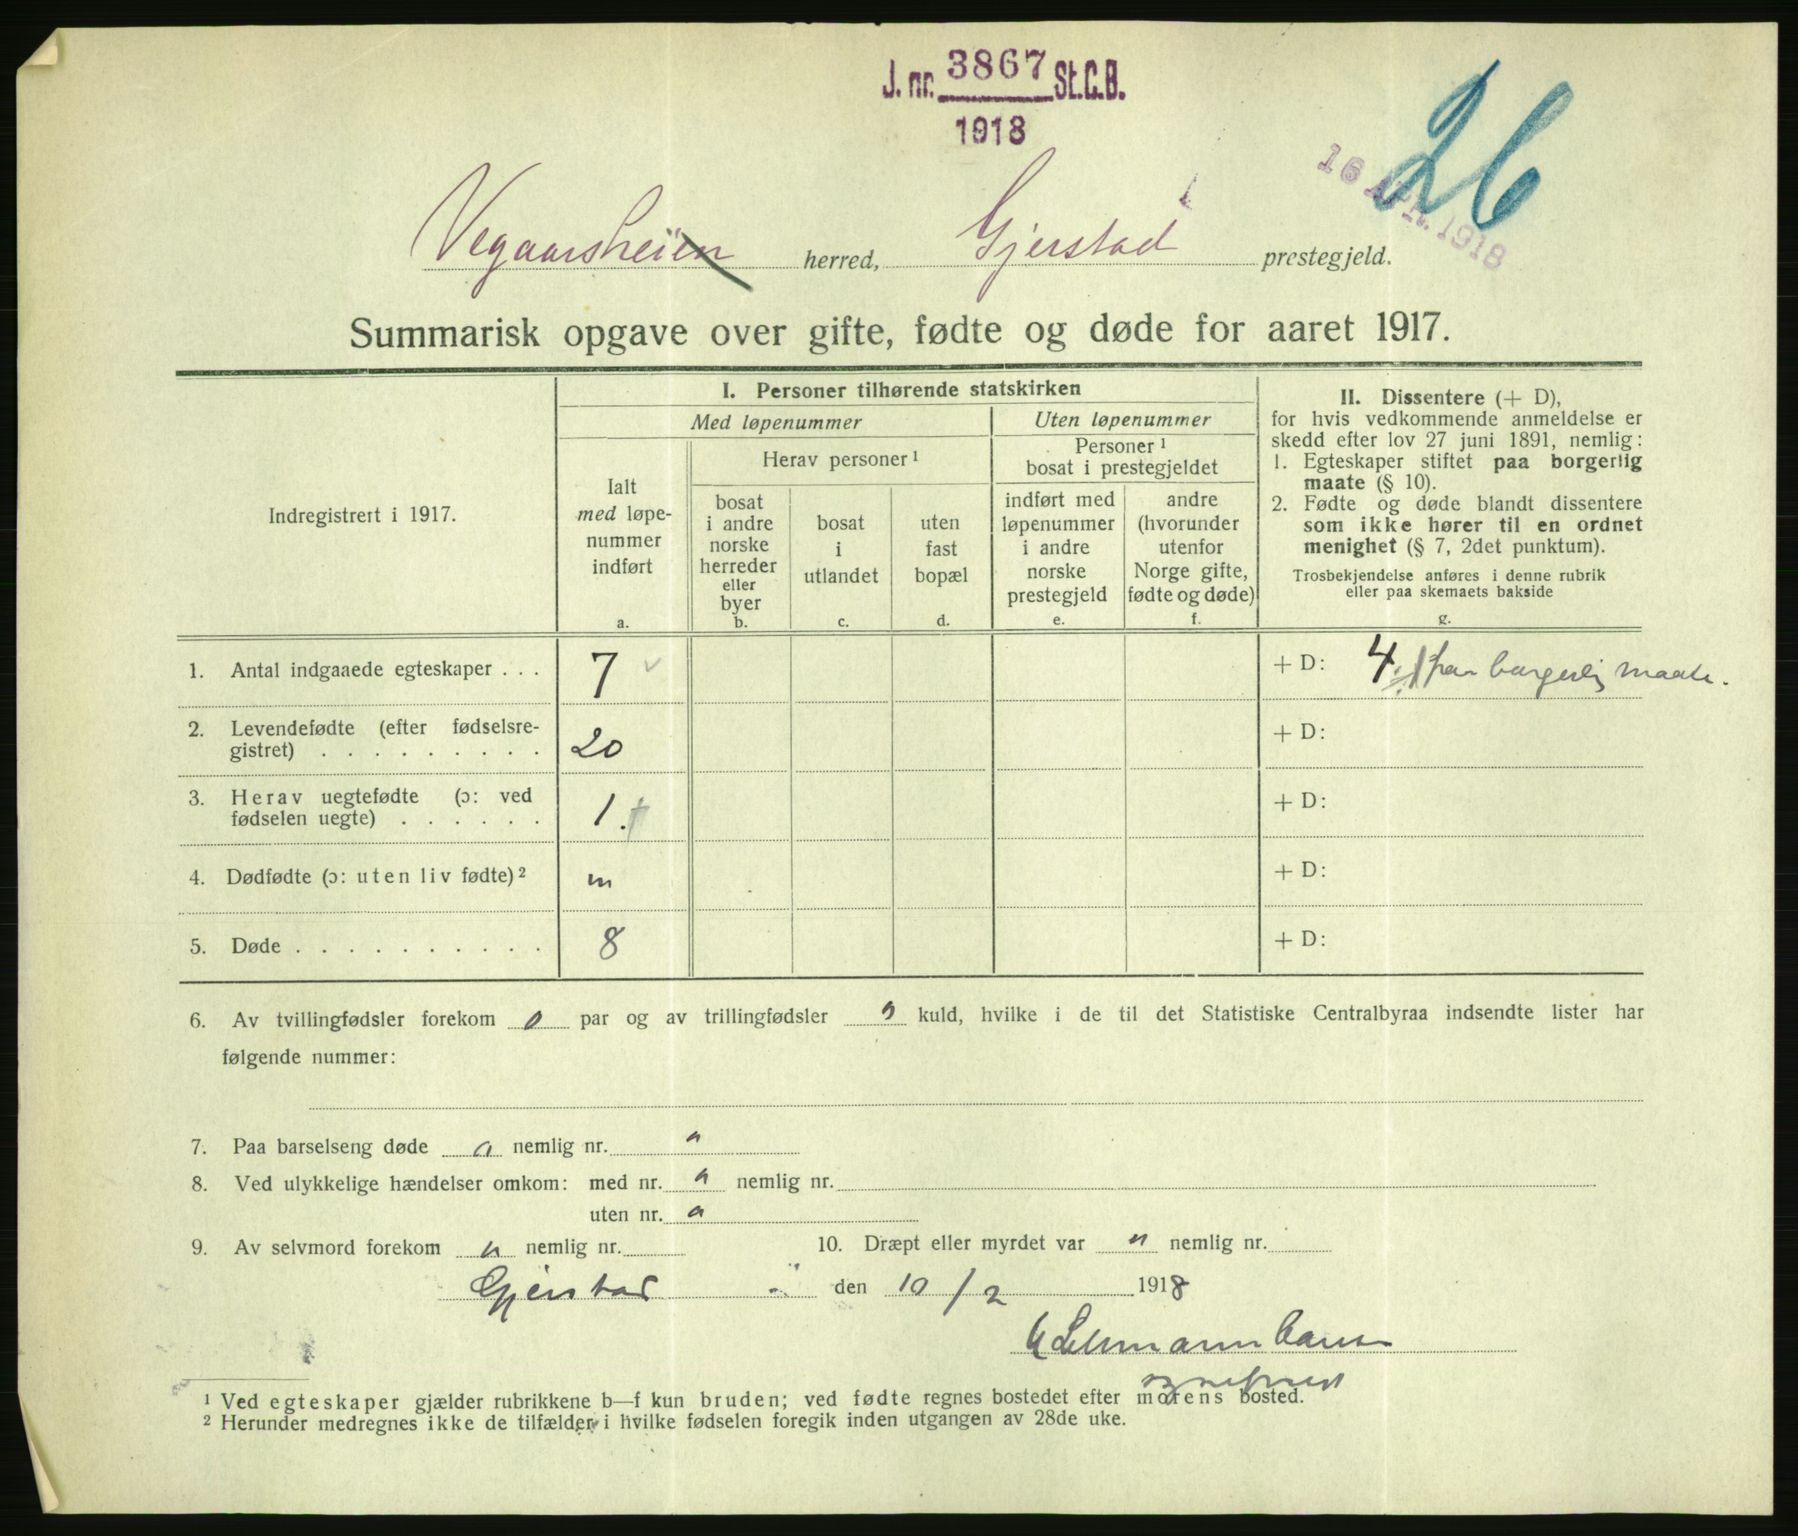 J. nr. 3867 St.C.B.
1918
26
16 APR. 1918
Vegaarsheien herred, Gjerstad prestegjeld.
Summarisk opgave over gifte, fødte og døde for aaret 1917.
Indregistrert i 1917.
I. Personer tilhørende statskirken
Med løpenummer
Uten løpenummer
Ialt
med løpe-
nummer
indført
a.
Herav personer¹
bosat
i andre
norske
herreder
eller
byer
b.
bosat
i
utlandet
c.
uten
fast
bopæl
d.
Personer¹
bosat i prestegjeldet
indført med
løpenummer
i andre
norske
prestegjeld
e.
andre
(hvorunder
utenfor
Norge gifte,
fødte og døde)
f.
II. Dissentere (+ D),
for hvis vedkommende anmeldelse er
skedd efter lov 27 juni 1891, nemlig:
1. Egteskaper stiftet paa borgerlig
maate (§ 10).
2. Fødte og døde blandt dissentere
som ikke hører til en ordnet
menighet (§ 7, 2det punktum).
Trosbekjendelse anføres i denne rubrik
eller paa skemaets bakside
g.
1. Antal indgaaede egteskaper . . . 7 + D: 4 paa borgerlig maate.
2. Levendefødte (efter fødselsre-
gistret) . . . . . . . . . 20 + D:
3. Herav uegtefødte (ɔ: ved
fødselen uegte) . . . . . . 1. + D:
4. Dødfødte (ɔ: uten liv fødte)² + D:
5. Døde . . . . . . . . . . 8 + D:
6. Av tvillingfødsler forekom 0 par og av trillingfødsler 0 kuld, hvilke i de til det Statistiske Centralbyraa indsendte lister har
følgende nummer:
7. Paa barselseng døde nemlig nr.
8. Ved ulykkelige hændelser omkom: med nr. nemlig nr.
uten nr.
9. Av selvmord forekom nemlig nr. 10. Dræpt eller myrdet var nemlig nr.
Gjerstad den 10/2 1918
Lehmann
sogneprest
¹ Ved egteskaper gjælder rubrikkene b—f kun bruden; ved fødte regnes bostedet efter morens bosted.
² Herunder medregnes ikke de tilfælder i hvilke fødselen foregik inden utgangen av 28de uke.